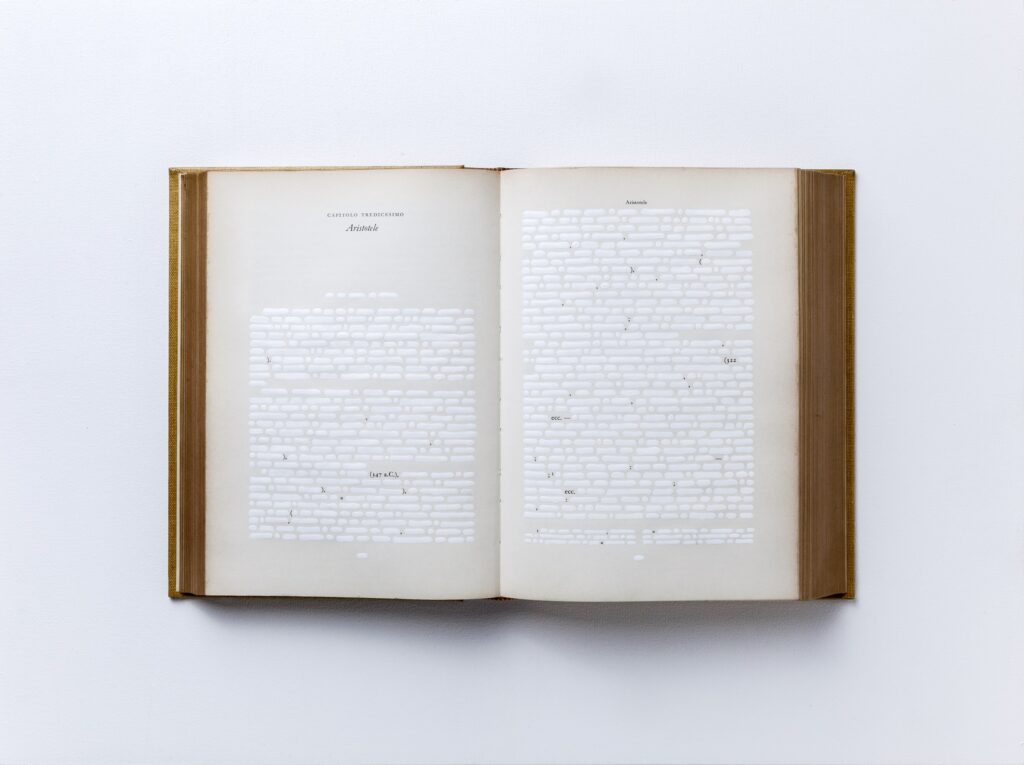 CAPITOLO TREDICESIMO
Aristotele
),
),
(347 a.C.),
),
),
(
Aristotele
(
),
(322
ecc. —
—
ecc.